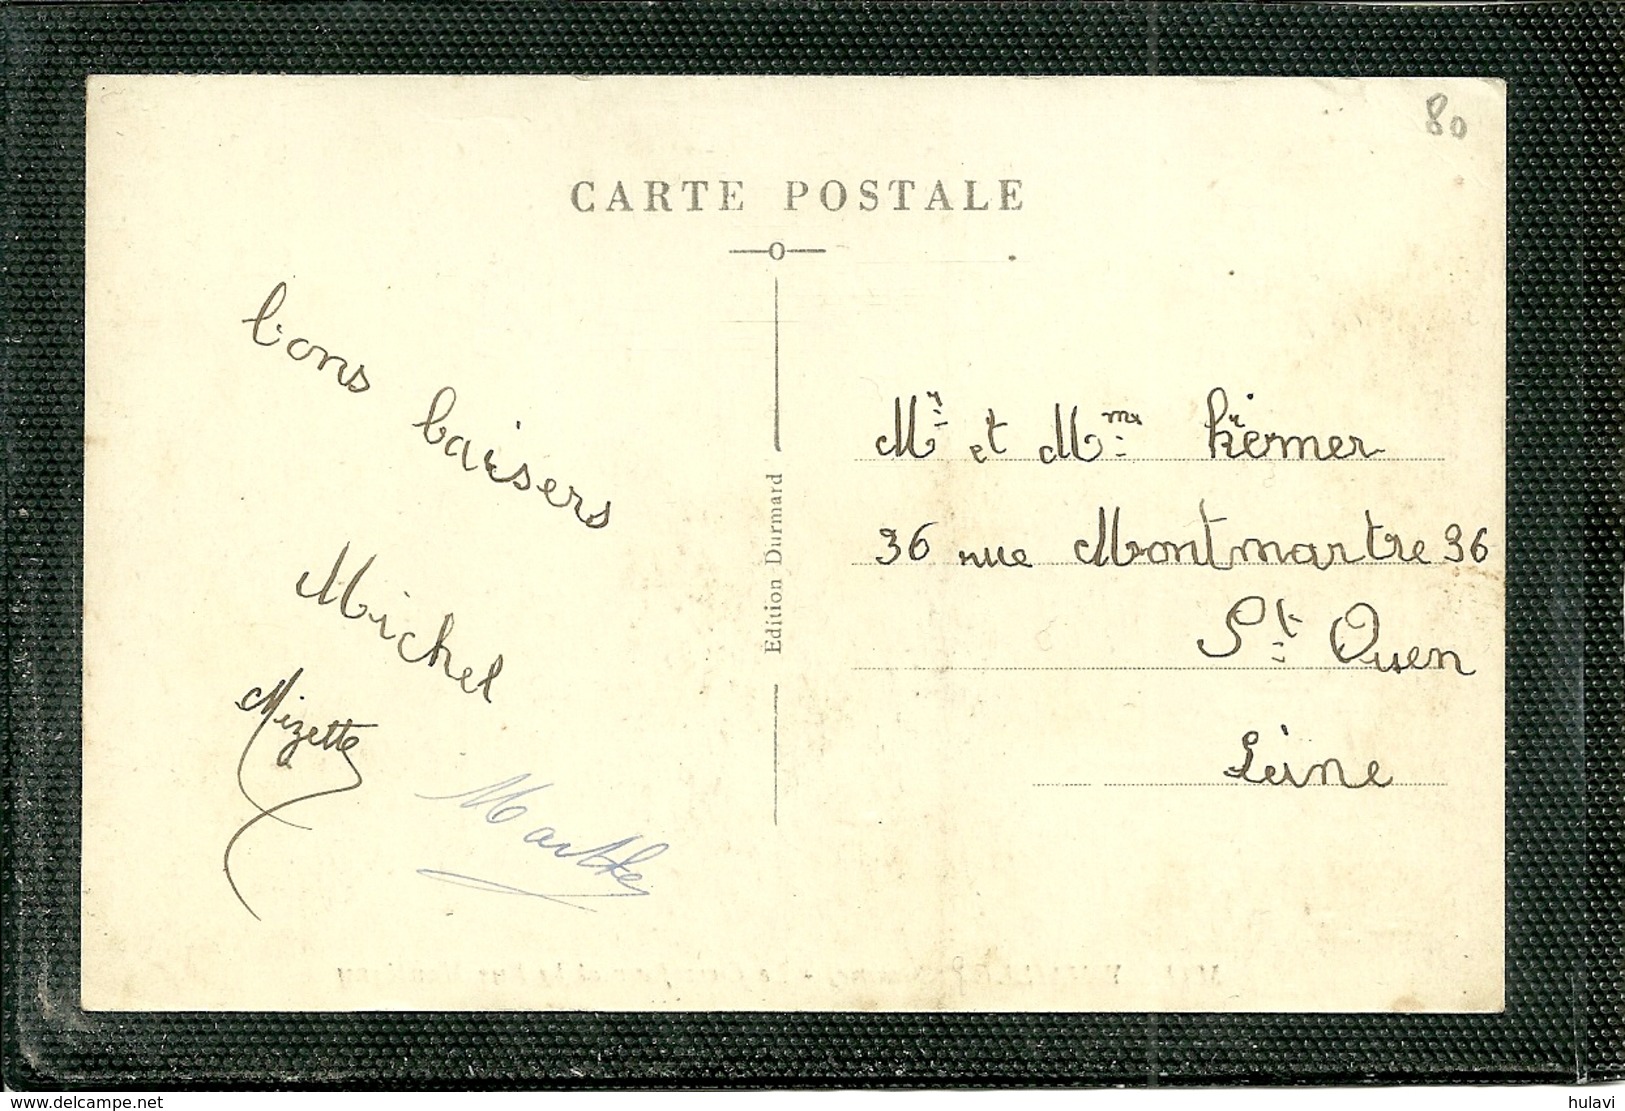 80
CARTE POSTALE
bons baisers
Michel
Mizette
Marthe
Edition Durmard
Mr et Mme Kremer
36 rue Montmartre 36
St Ouen
Seine
www.delcampe.net
hulavi